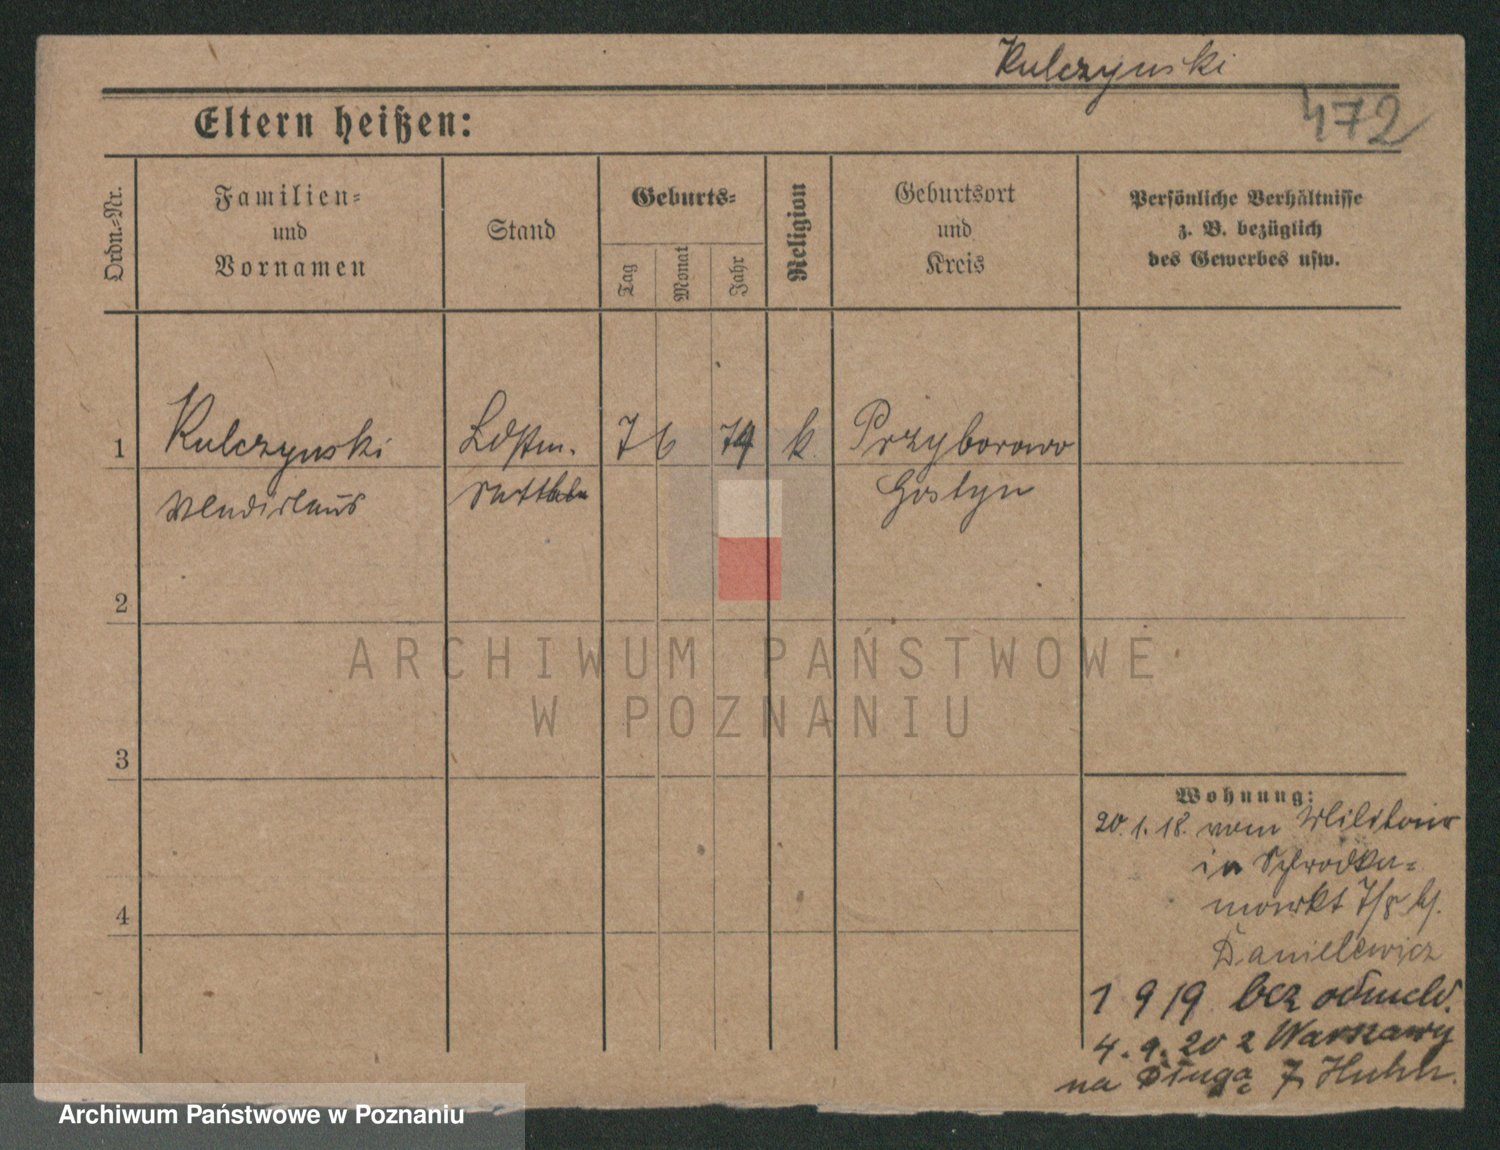 Kulczynski
472
Eltern heißen:
Ordn.-Nr.
Familien- und Vornamen
Stand
Geburts-
Tag
Monat
Jahr
Religion
Geburtsort und Kreis
Persönliche Verhältnisse
z. B. bezüglich
des Gewerbes usw.
1 Kulczynski Ldstm. 7 6 74 k. Przyborowo
Gostyn
2
3
4
Wohnung:
20.1.18. vom Militair
in Schrodka-
markt 7/8 b/.
Danielewicz
1919 bez odmeld.
4.9.20 z Warszawy
na Długą 7
ARCHIWUM PAŃSTWOWE
W POZNANIU
Archiwum Państwowe w Poznaniu